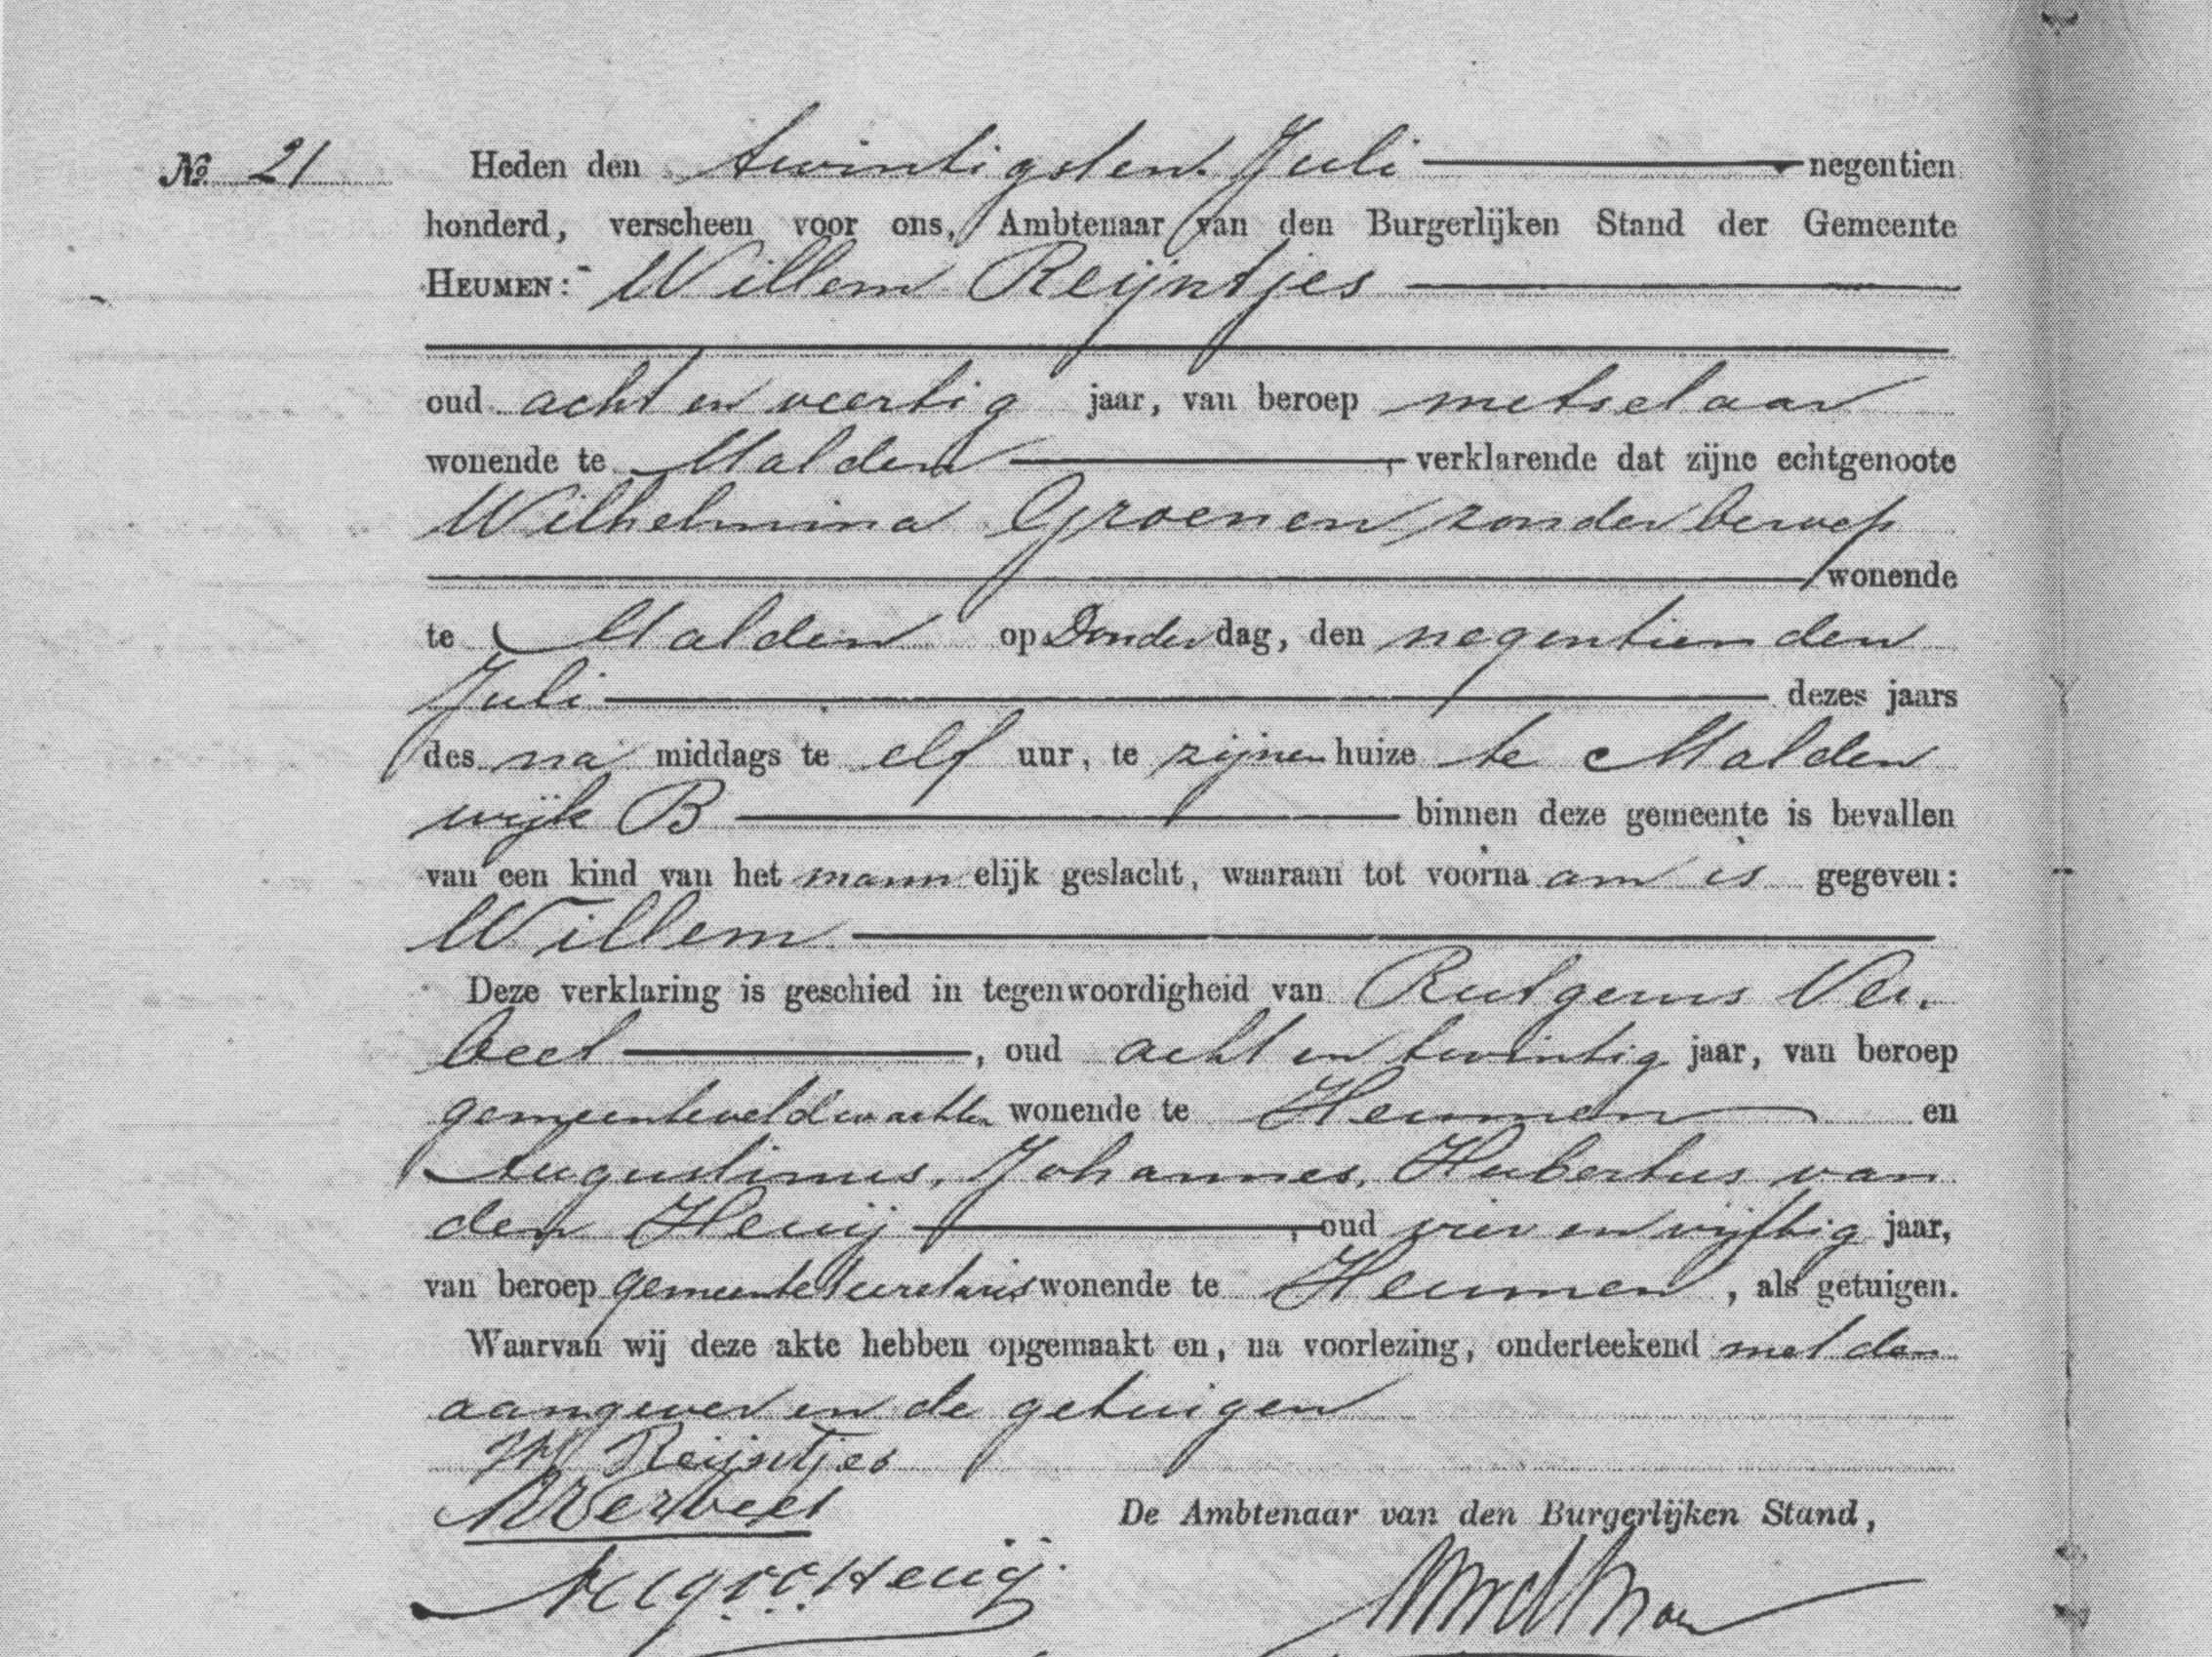 No 21 Heden den twintigsten Juli negentien
honderd, verscheen voor ons, Ambtenaar van den Burgerlijken Stand der Gemeente
HEUMEN: Willem Reijntjes
oud acht en veertig jaar, van beroep metselaar
wonende te Malden, verklarende dat zijne echtgenoote
Wilhelmina Groenen zonder beroep
wonende
te Malden op Donderdag, den negentienden
Juli dezes jaars
des na middags te elf uur, te zijnen huize te Malden
wijk B binnen deze gemeente is bevallen
van een kind van het mannelijk geslacht, waaraan tot voornaam is gegeven:
Willem
Deze verklaring is geschied in tegenwoordigheid van Rutgerus Ver-
beet, oud acht en twintig jaar, van beroep
gemeenteveldwachter wonende te Heumen en
Augustinus, Johannes, Hubertus van
den Heuij, oud vier en vijftig jaar,
van beroep gemeentesecretaris wonende te Heumen, als getuigen.
Waarvan wij deze akte hebben opgemaakt en, na voorlezing, onderteekend met den
aangever en de getuigen
W Reijntjes
R Verbeet
De Ambtenaar van den Burgerlijken Stand,
Heuij